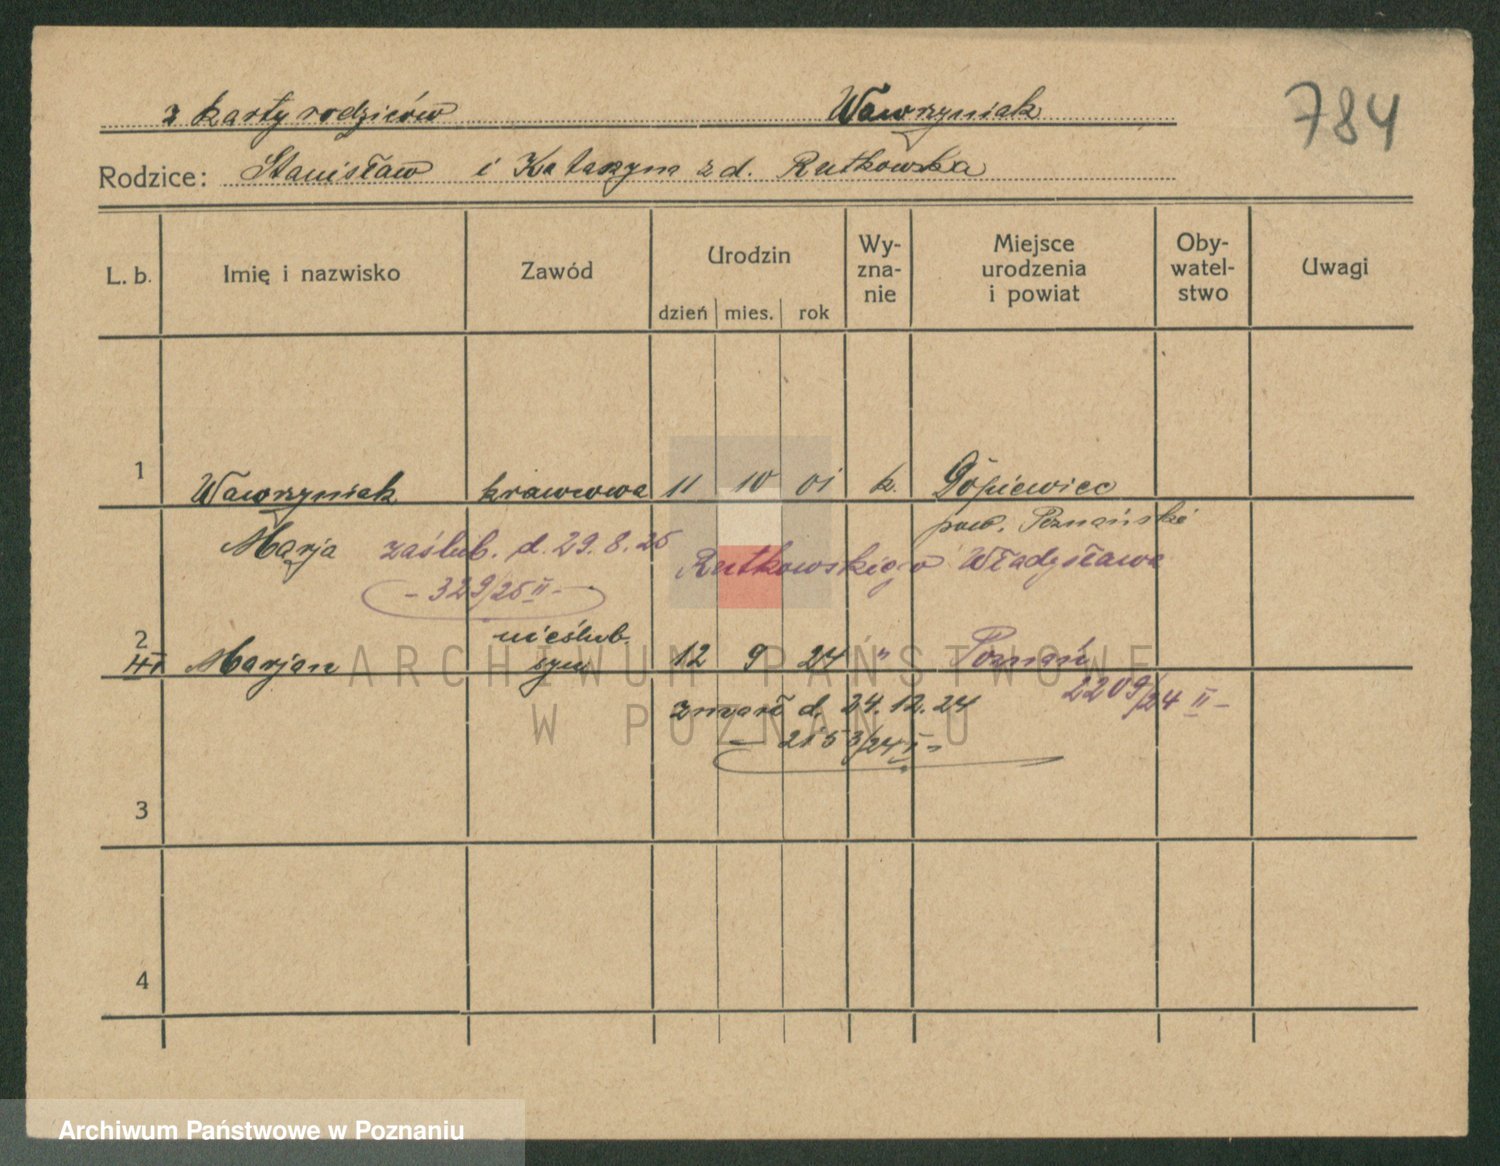 784
z karty rodziców Wawrzyniak
Rodzice: Stanisław i Katarzyna z d. Rutkowska
L. b. Imię i nazwisko Zawód Urodzin dzień mies. rok Wy-zna-nie Miejsce urodzenia i powiat Oby-watel-stwo Uwagi
1 Wawrzyniak krawcowa 11 10 01 k. Dopiewiec
pow. Poznański
Marja zaślub. d. 29.8.25 Rutkowskiego Władysława
- 329/25 II -
nieślub.
2 Marjan syn 12 9 24 " Poznań
2209/24 II -
zmarł d. 24.12.24
- 2153/24 I -
3
4
ARCHIWUM PAŃSTWOWE
W POZNANIU
Archiwum Państwowe w Poznaniu